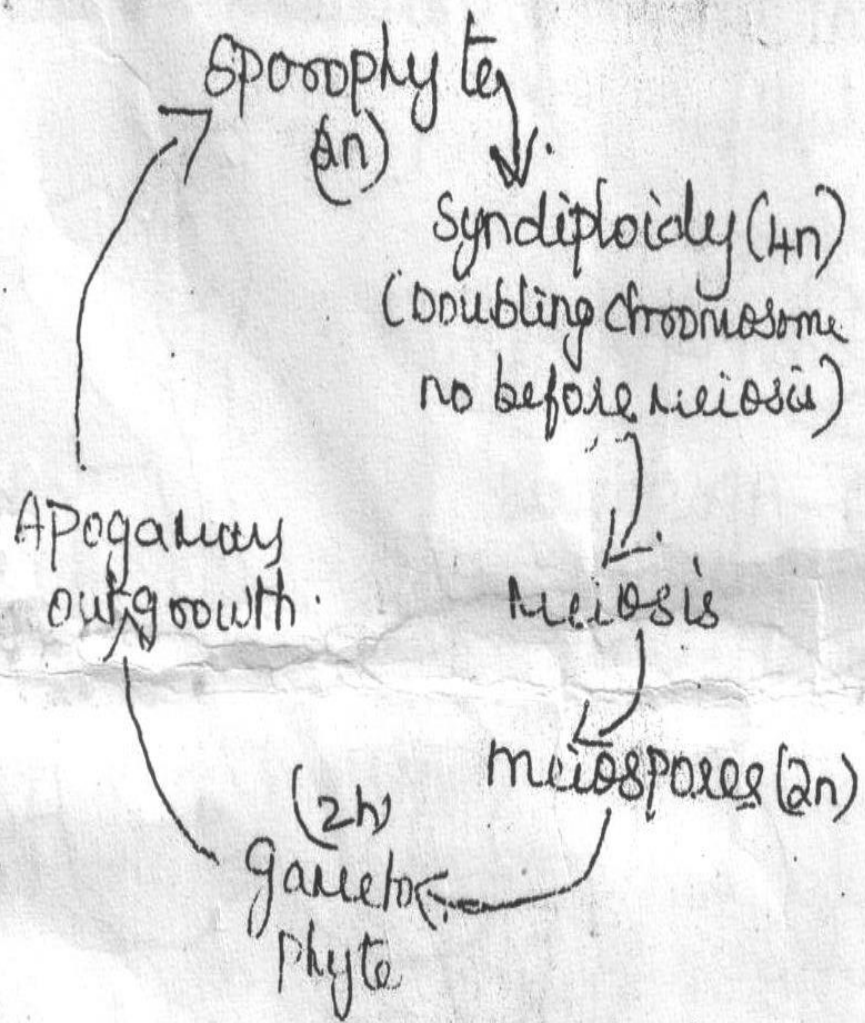 Sporophyte
(2n)
Syndiploidy (4n)
(Doubling chromosome
no before meiosis)
Meiosis
Meiospores (2n)
(2n)
gameto
phyte
Apogamy
outgrowth